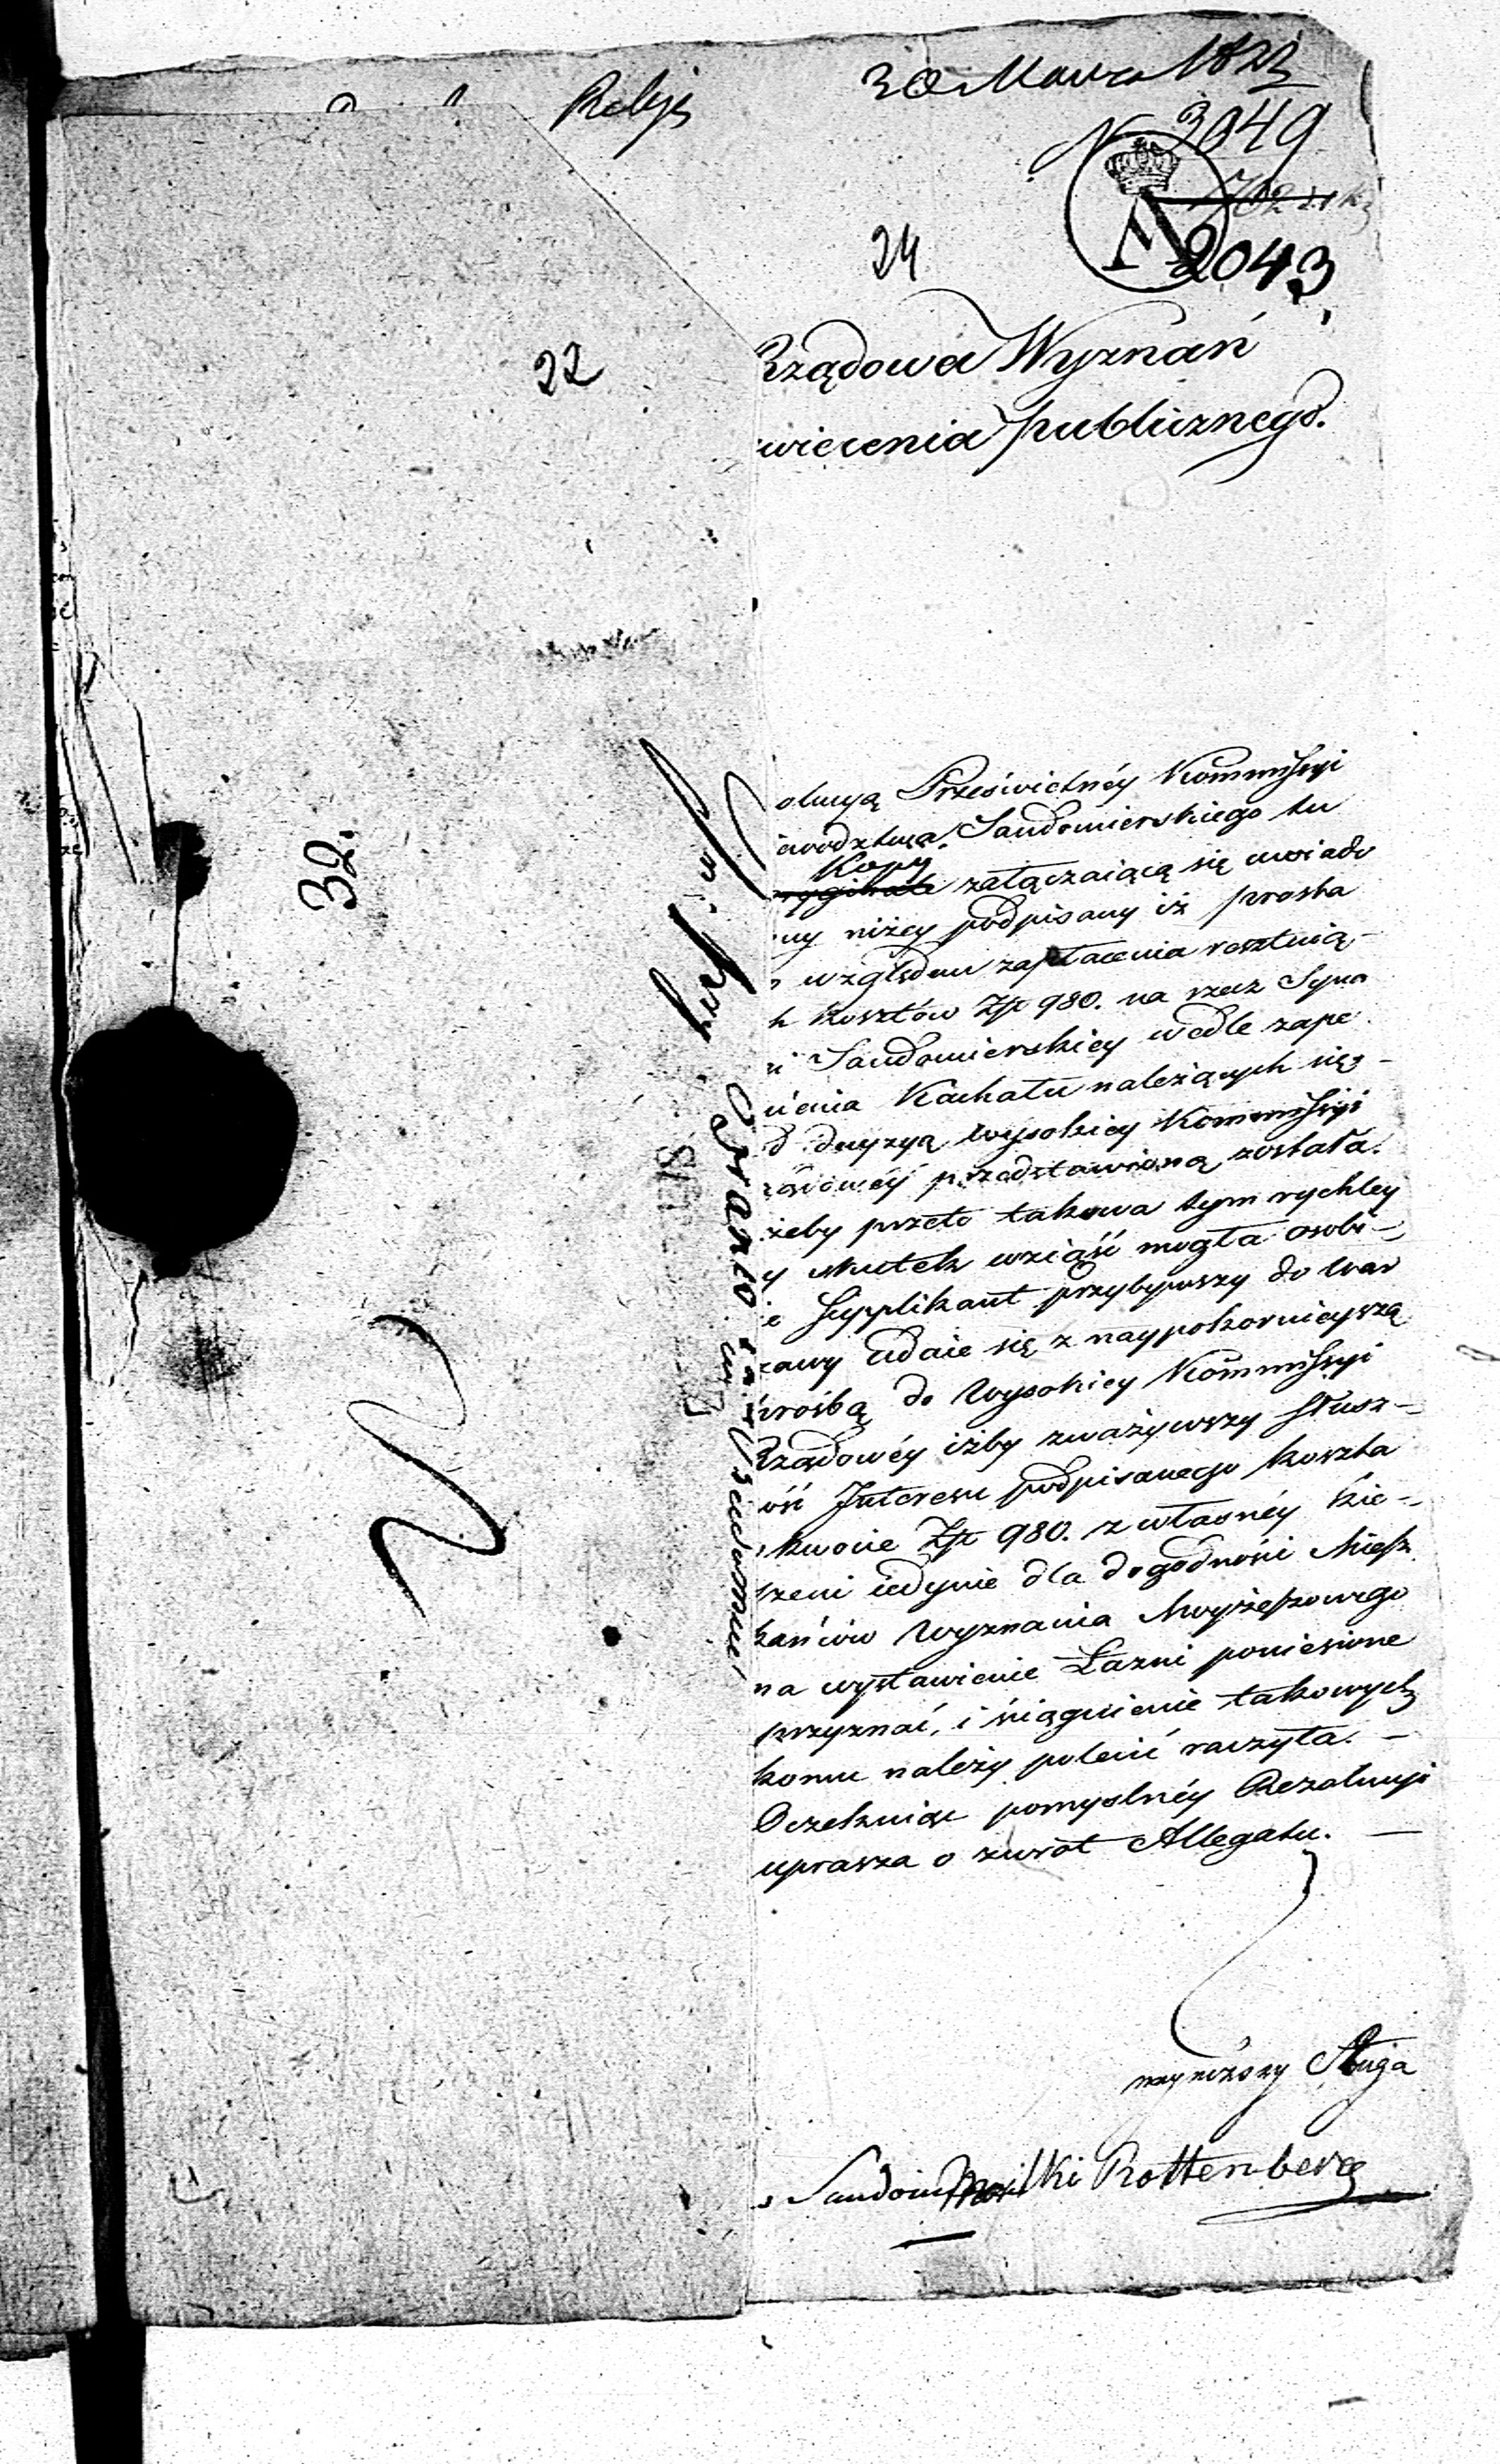 Religi
30 Marca 1823
N 3049
2043
24
22
32.
Rządowa Wyznań
wiecenia publicznego.
olucyą Prześwietnéy Kommissyi
ewodztwa Sandomierskiego tu
Kopy
załączaiącą się uwiado
ny niżey podpisany iż prosba
względem zapłacenia resztuią-
h kosztów Zp 980. na rzecz Syna
i Sandomierskiey wedle zape
nienia Kachału należących się-
d decyzyą Wysokiey Kommissyi
ządowéy przedstawioną została.
żeby przeto takowa tym rychley
y skutek wziąść mogła osobi-
ie Supplikant przybywszy do War
zawy udaie się z naypokornieyszą
prośbą do Wysokiey Kommissyi
Rządowéy iżby zważywszy słusz-
ość Interesu podpisanego koszta
kwocie Zp 980. z własnéy kie-
szeni iedynie dla dogodności Miesz
kańców Wyznania Moyżeszowego
na wystawienie Łazni poniesione
przyznać, i ściągnienie takowych
komu należy polecić raczyła. —
Oczekuiąc pomyslnéy Rezolucyi
uprasza o zwrot Allegatu. —
nayniższy Sługa
Rottenberg